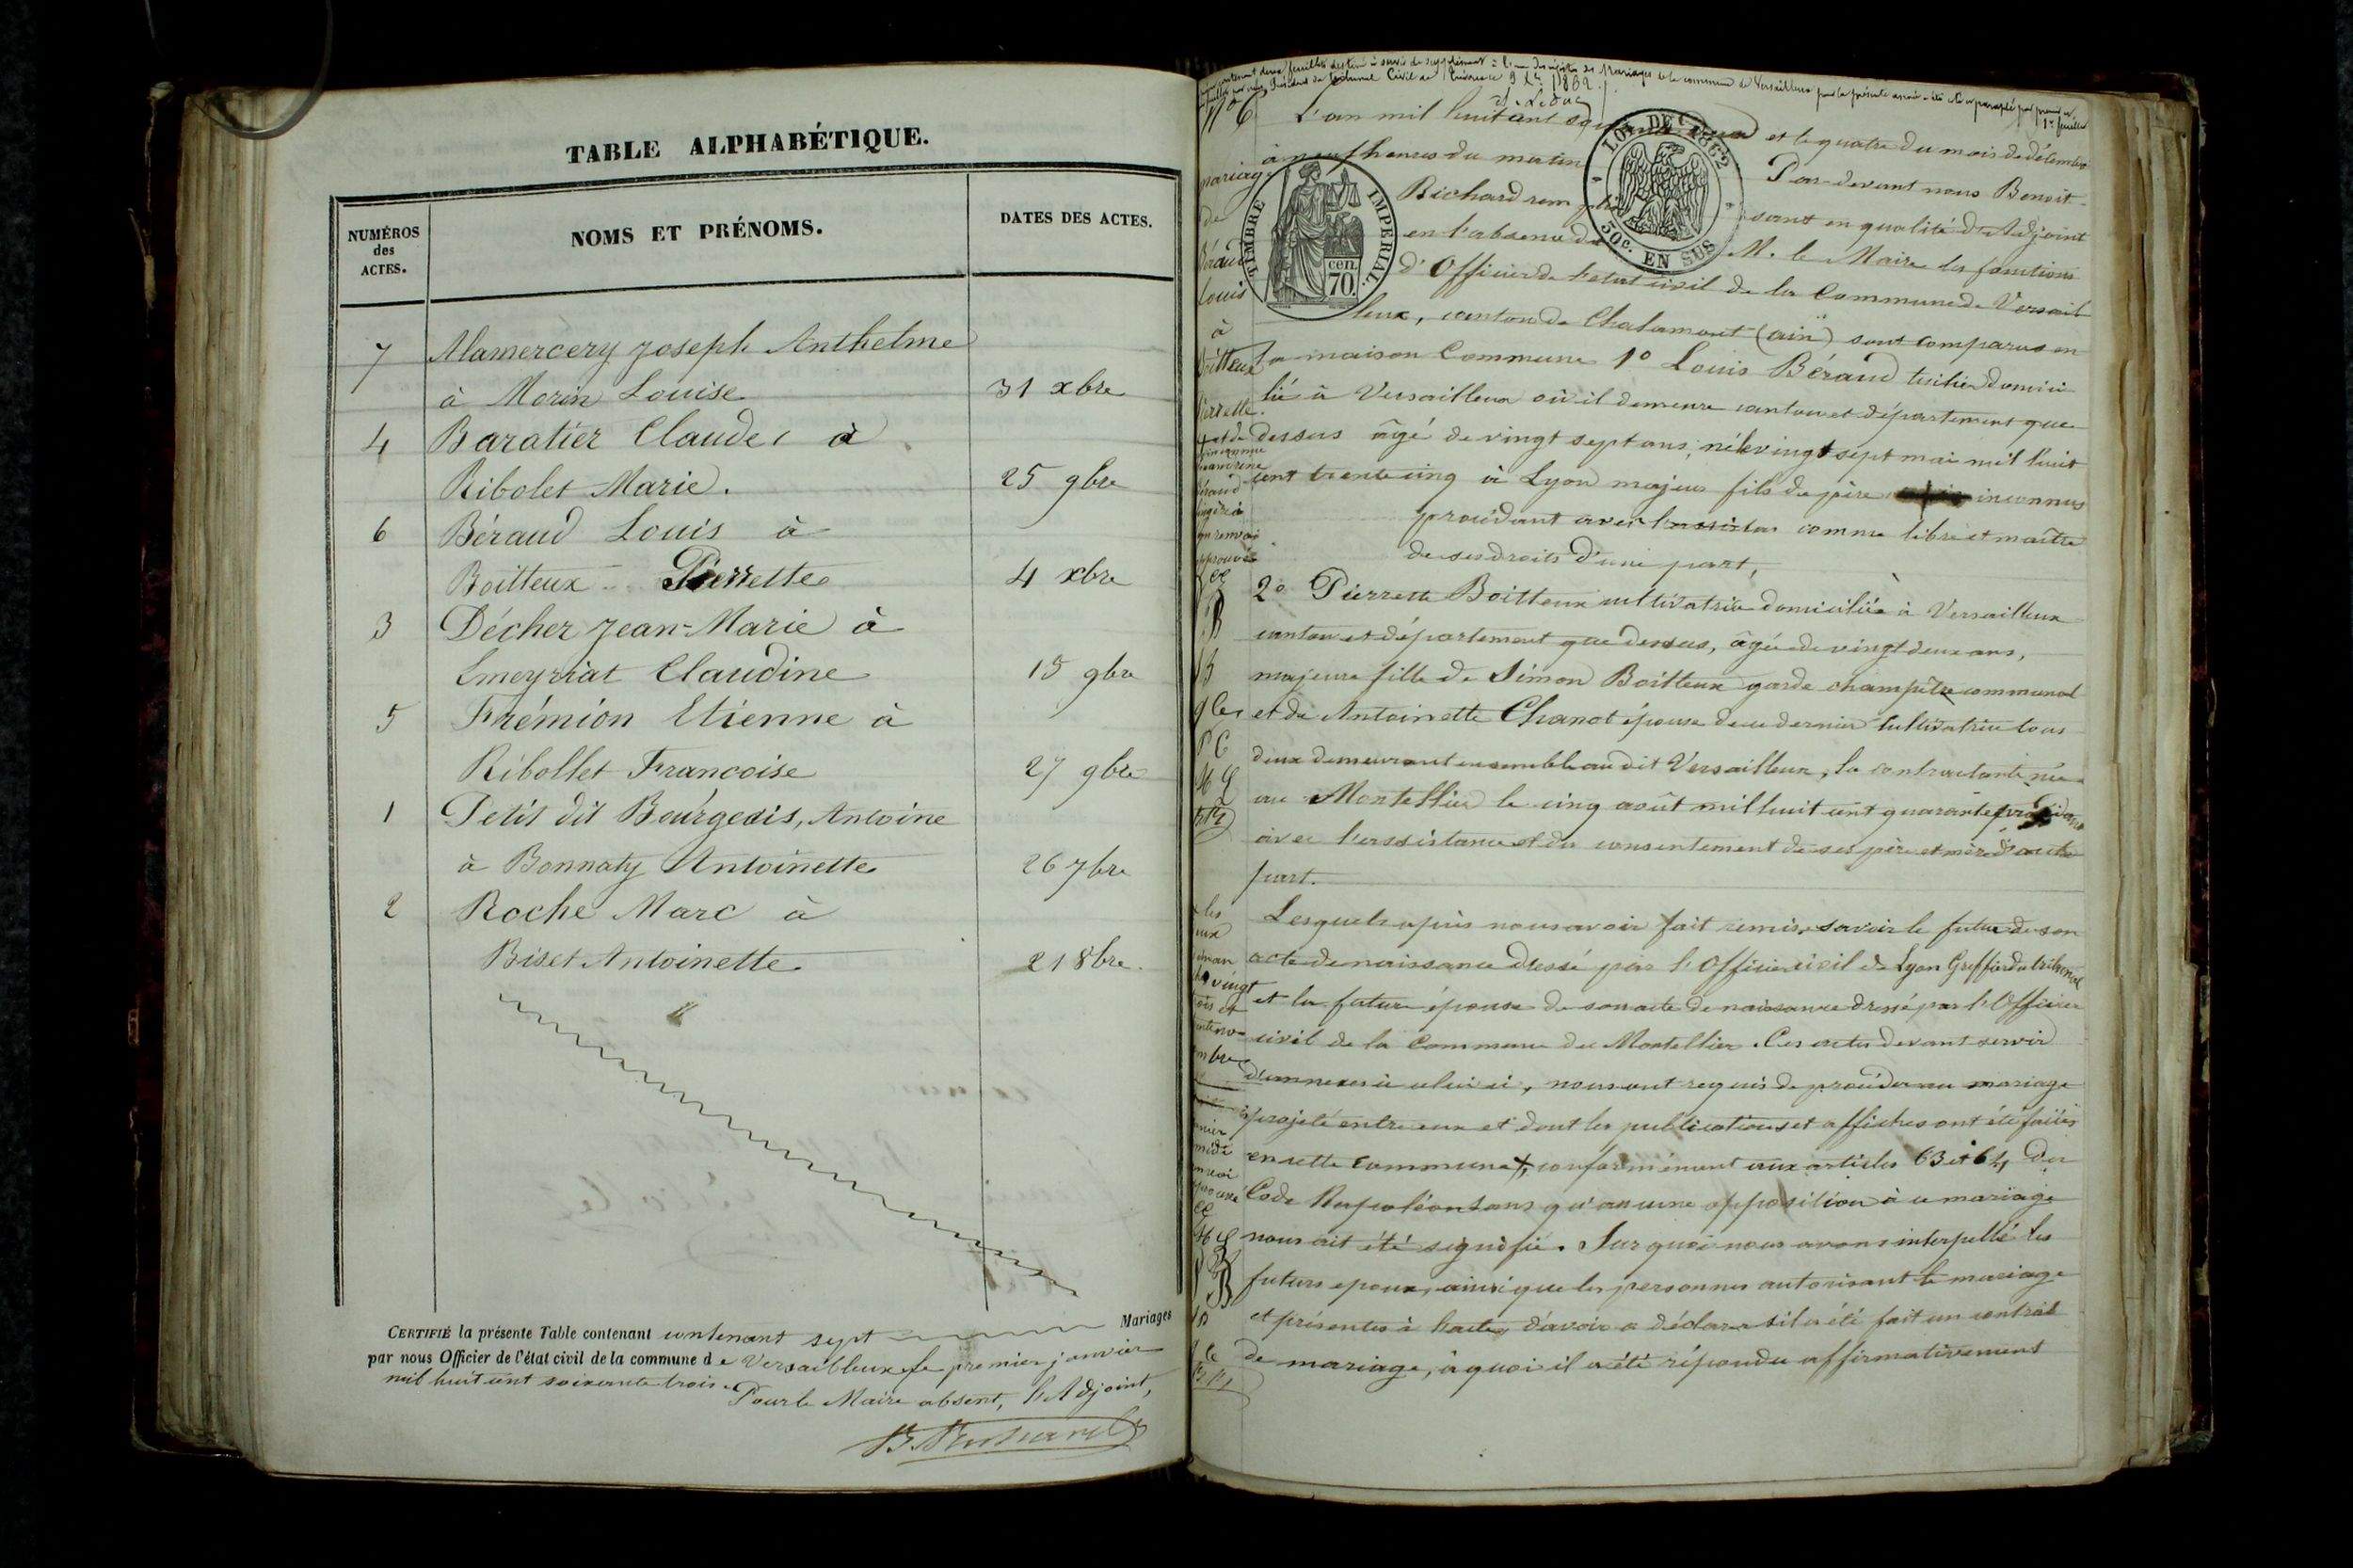 TABLE ALPHABÉTIQUE.
NUMÉROS des ACTES.
NOMS ET PRÉNOMS.
DATES DES ACTES.
7 Alamercery Joseph Anthelme
à Morin Louise 31 xbre
4 Baratier Claude à
Ribolet Marie. 25 9bre
6 Béraud Louis à
Boitteux Pierrette 4 xbre
3 Décher Jean-Marie à
Emeyriat Claudine 15 9bre
5 Frémion Etienne à
Ribollet Francoise 27 9bre
1 Petit dit Bourgeois, Antoine
à Bonnaty Antoinette 26 7bre
2 Roche Marc à
Biset Antoinette 21 8bre.
CERTIFIÉ la présente Table contenant contenant sept Mariages
par nous Officier de l'état civil de la commune de Versailleux le premier janvier
mil huit cent soixante trois.
Pour le Maire absent, l'Adjoint,
B. Richard
feuillets destiné à servir de supplément à des registres de Mariages de la commune de Versailleux pour la présente année a été coté et paraphé par premier
par nous Président du Tribunal Civil de Trévoux le 9 Xbre 1862. 1er feuillet
N° 6
mariage
de
Béraud
Louis
à
Boitteux
Pierrette.
TIMBRE IMPÉRIAL
70 cen.
LOI DE 1862
50c. EN SUS
L'an mil huit cent et le quatre du mois de décembre
à neuf heures du matin Par-devant nous Benoit
Richard remplissant en qualité d'Adjoint
en l'absence de M. le Maire les fonctions
d'Officier de l'état civil de la Commune de Versail
leux, canton de Chalamont (ain) sont comparus en
la maison Commune 1° Louis Béraud tuilier domici
lié à Versailleux où il demeure canton et département que
dessus âgé de vingt sept ans, né le vingt sept mai mil huit
cent trente cinq à Lyon majeur fils de père inconnus
procédant avec l'assistan comme libre et maître
de ses droits d'une part,
2° Pierrette Boitteux cultivatrice domiciliée à Versailleux
canton et département que dessus, âgée de vingt deux ans,
majeure fille de Simon Boitteux garde champêtre communal
et de Antoinette Chanot épouse de ce dernier cultivatrice tous
deux demeurant ensemble audit Versailleux, la contractante née
au Montellier le cinq août mil huit cent quarante procédant
avec l'assistance et du consentement de ses père et mère d'autre
part.
Lesquels après nous avoir fait remise, savoir le futur de son
acte de naissance dressé par l'Officier civil de Lyon Greffier du tribunal
et la future épouse de son acte de naissance dressé par l'Officier
civil de la Commune du Montellier. Ces actes devant servir
d'annexes à celui ci, nous ont requis de procéder au mariage
projeté entre eux et dont les publications et affiches ont été faites
en cette Commune, conformément aux articles 63 et 64 du
Code Napoléon sans qu'aucune opposition à ce mariage
nous ait été signifié. Sur quoi nous avons interpellé les
futurs epoux, ainsi que les personnes autorisant le mariage
et présentes à l'acte, d'avoir a déclarer s'il a été fait un contrat
de mariage, à quoi il a été répondu affirmativement